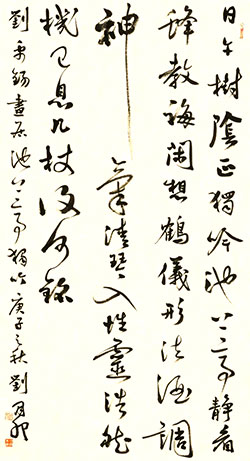 日午樹陰正獨吟池上亭靜看
蜂教誨閑想鶴儀形法酒調
神氣清琴入性靈浩然
機已息几杖復何銘
劉禹錫晝居池上亭獨吟庚子之秋劉